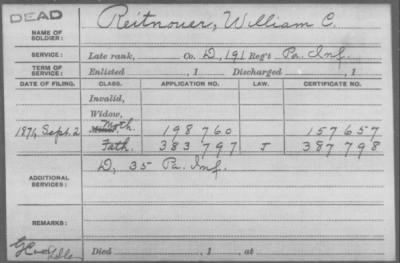 DEAD
NAME OF SOLDIER: Reitnouer, William C.
SERVICE: Late rank, Co. D, 191 Reg't Pa. Inf.
TERM OF SERVICE: Enlisted , 1 Discharged , 1
DATE OF FILING. CLASS. APPLICATION NO. LAW. CERTIFICATE NO.
Invalid,
Widow,
1874, Sept. 2 Moth. 198 760 157657
Fath. 383 797 J 387 798
ADDITIONAL SERVICES: D, 35 Pa. Inf.
REMARKS:
Died , 1 , at